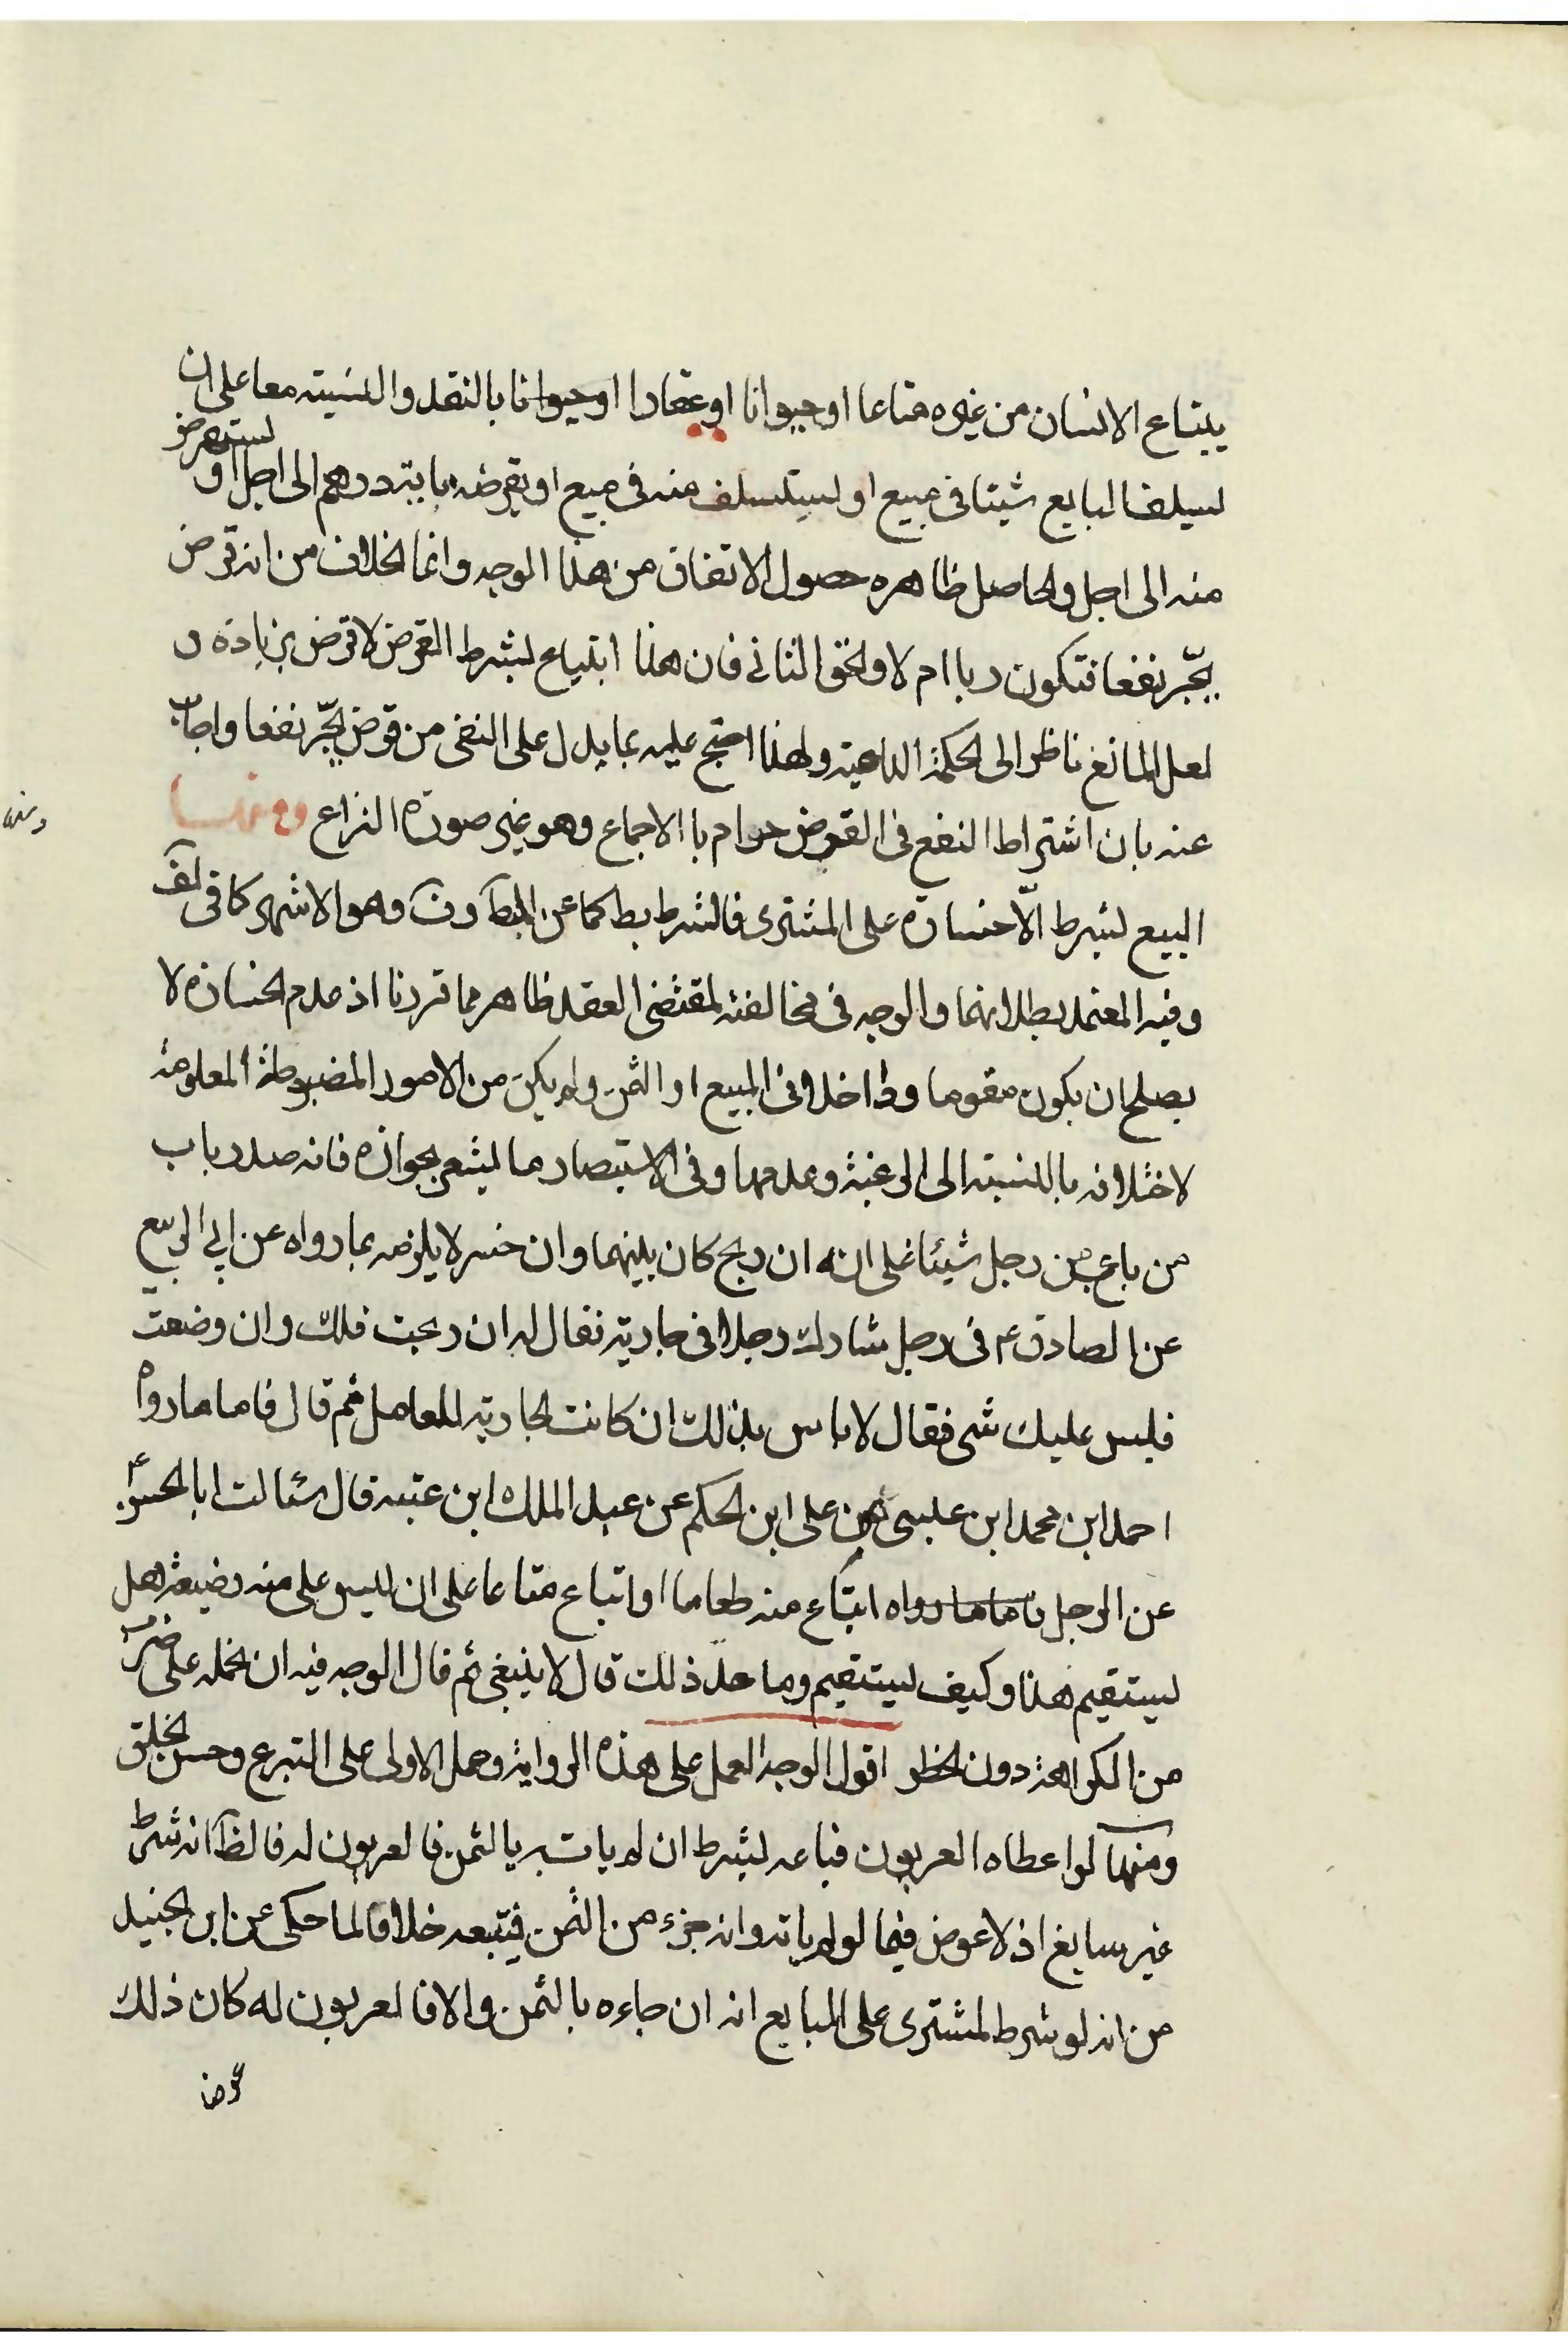 يبتاع الانسان من غيره متاعا او حيوانا او عقارا او حيوانا بالنقد والنسيته معا على ان
يسلف البايع شيئا فى مبيع او يستسلف منه فى مبيع او يقرضه مايته درهم الى اجل او يستقرض
منه الى اجل والحاصل ظاهره حصول الاتفاق من هذا الوجه وانما الخلاف من انه قرض
يجّر نفعا فتكون ربا ام لا والحق الثانى فان هذا ابتياع بشرط القرض لا قرض بزيادة و
لعل المانع ناظر الى الحكمة الداعية ولهذا احتج عليه بما يدل على النهى من قرض يجّر نفعا واجاب
عنه بان اشتراط النفع فى القرض حرام با الاجماع وهو غير صورة النزاع ومنها
البيع بشرط الّا خسارة على المشترى فالشرط بط كما عن المبَط ون وهو الاشهر كما فى لف
وفيه المعتمد بطلانهما والوجه فى مخالفته لمقتضى العقد ظاهر مما قررنا اذ عدم الخسارة لا
يصلح ان يكون مقوما وداخلا فى المبيع او الثمن ولم يكن من الامور المضبوطة المعلومة
لاختلافه بالنسبته الى الرغبة وعدمها وفى الاستبصار ما يشعر بجوازه فانه صدر باب
من باع من رجل شيئا على انه ان ربح كان بينهما وان خسر لا يلزمه بما رواه عن ابى الربيع
عن الصادق ع فى رجل شارك رجلا فى جاريته فقال له ان ربحت فلك وان وضعت
فليس عليك شى فقال لا باس بذلك ان كانت الجاريته للعامل ثم قال فاما ما رواه
احمد ابن محمد ابن عيسى عن على ابن الحكم عن عبد الملك ابن عتبه قال سئالت ابا الحسن ع
عن الرجل فاما ما رواه ابتاع منه طعاما او اتباع متاعا على ان ليس على منه وضيعة هل
يستقيم هذا وكيف يستقيم وما حد ذلك قال لا ينبغى ثم قال الوجه فيه ان نحمله على ضرب
من الكراهة دون الحظر اقول الوجه العمل على هذه الرواية وحمل الاولى على التبرع وحسن الخلق
ومنها لو اعطاه العربون فباعه بشرط ان لم يات به بالثمن فالعربون له فالظ انه شرط
غير سايغ اذ لا عوض فيما لو لم ياته وانه جزء من الثمن فيتبعه خلافا لما حكى عن ابن الجنيد
من انه لو شرط المشترى على البايع انه ان جاءه بالثمن والا فالعربون له كان ذلك
عوضا
ومنها